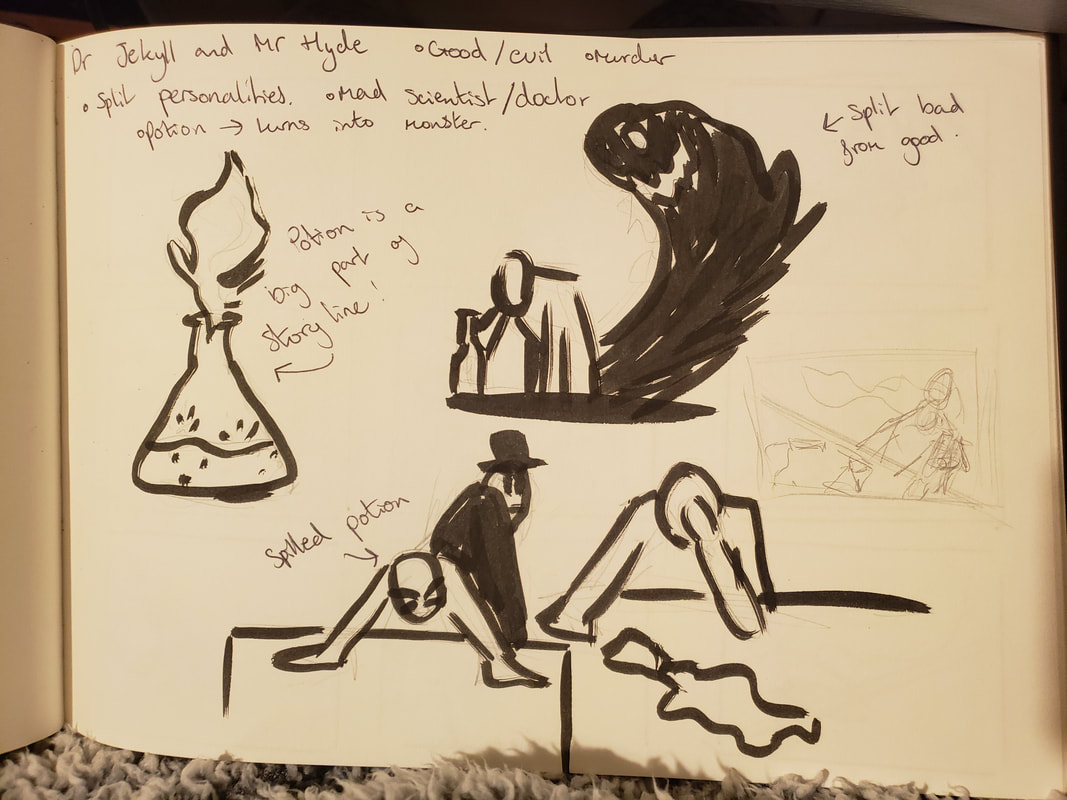 Dr Jekyll and Mr Hyde • Good/evil • Murder
• Split personalities. • Mad scientist/doctor
• Potion → turns into monster.
← Split bad
from good.
Potion is a
big part of
story line!
Spilled potion